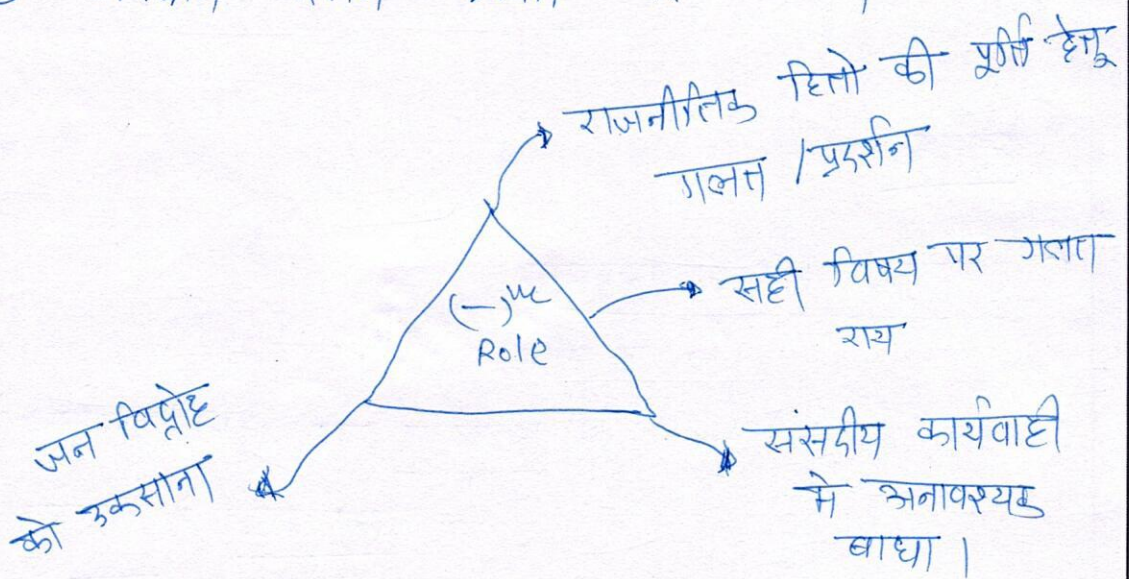 राजनीतिक हितो की पूर्ति हेतू
गलत / प्रदर्शन
सही विषय पर गलत
राय
(–)ve
Role
संसदीय कार्यवाही
मे अनावश्यक
बाधा ।
जन विद्रोह
को उकसाना